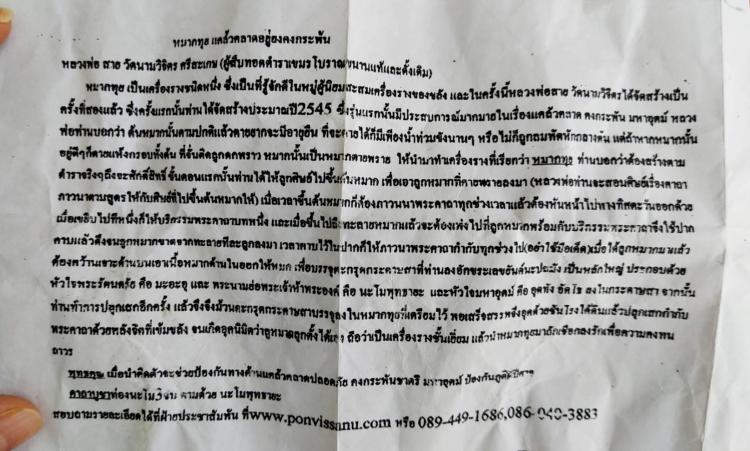 หมากทุย แคล้วคลาดอยู่ยงคงกระพัน
หลวงพ่อ สาย วัดนามวิจิตร ศรีสะเกษ (ผู้สืบทอดตำราเขมรโบราณขนานแท้และดั้งเดิม)
หมากทุย เป็นเครื่องรางชนิดหนึ่ง ซึ่งเป็นที่รู้จักดีในหมู่ผู้นิยมสะสมเครื่องรางของขลัง และในครั้งนี้หลวงพ่อสาย วัดนามวิจิตรได้จัดสร้างเป็น
ครั้งที่สองแล้ว ซึ่งครั้งแรกนั้นท่านได้จัดสร้างประมาณปี2545 ซึ่งรุ่นแรกนั้นมีประสบการณ์มากมายในเรื่องแคล้วคลาด คงกระพัน มหาอุตม์ หลวง
พ่อท่านบอกว่า ต้นหมากนั้นตามปกติแล้วตายยากจะมีอายุยืน ที่จะตายได้ก็มีเพียงน้ำท่วมขังนานๆ หรือไม่ก็ถูกลมพัดหักกลางต้น แต่ถ้าหากหมากนั้น
อยู่ดีๆก็ตายแห้งกรอบทั้งต้น ที่จั่นติดลูกดกพราว หมากนั้นเป็นหมากตายพราย ให้นำมาทำเครื่องรางที่เรียกว่า หมากทุย ท่านบอกว่าต้องสร้างตาม
ตำราจริงๆถึงจะศักดิ์สิทธิ์ ขั้นตอนแรกนั้นท่านได้ให้ลูกศิษย์ไปขึ้นต้นหมาก เพื่อเอาลูกหมากที่ตายพรายลงมา (หลวงพ่อท่านจะสอนศิษย์เรื่องคาถา
ภาวนาตามสูตรให้กับศิษย์ที่ไปขึ้นต้นหมากให้) เมื่อเวลาขึ้นต้นหมากก็ต้องภาวนาพระคาถาทุกช่วงเวลาแล้วต้องหันหน้าไปทางทิศตะวันออกด้วย
เมื่อเขยิบไปทีหนึ่งก็ให้บริกรรมพระคาถาบทหนึ่ง และเมื่อขึ้นไปถึงทะลายหมากแล้วจะต้องเพ่งไปที่ลูกหมากพร้อมกับบริกรรมพระคาถาจึงใช้ปาก
คาบแล้วดึงจนลูกหมากขาดจากทะลายทีละลูกลงมา เวลาคาบไว้ในปากก็ให้ภาวนาพระคาถากำกับทุกช่วงไป(อย่าใช้มือเด็ด)เมื่อได้ลูกหมากมาแล้ว
ต้องคว้านเจาะด้านบนเอาเนื้อหมากด้านในออกให้หมด เพื่อบรรจุตะกรุดกระดาษสาที่ท่านลงอักขระเลขยันต์นะปถมัง เป็นหลักใหญ่ ประกอบด้วย
หัวใจพระรัตนตรัย คือ มะอะอุ และ พระนามย่อพระเจ้าห้าพระองค์ คือ นะโมพุทธายะ และหัวใจมหาอุตม์ คือ อุดทัง อัดโธ ลงในกระดาษสา จากนั้น
ท่านทำการปลุกเสกอีกครั้ง แล้วจึงจึงม้วนตะกรุดกระดาษสาบรรจุลงในหมากทุยที่เตรียมไว้ พอเสร็จสรรพจึงอุดด้วยชันโรงใต้ดินแล้วปลุกเสกกำกับ
พระคาถาด้วยพลังจิตที่เข้มขลัง จนเกิดอุคนิมิตว่าลูกหมากลุกตั้งได้เอง ถือว่าเป็นเครื่องรางชั้นเยี่ยม แล้วนำหมากทุยมาถักเชือกลงรักเพื่อความคงทน
ถาวร
พุทธคุณ เมื่อนำติดตัวจะช่วยป้องกันทางด้านแคล้วคลาดปลอดภัย คงกระพันชาตรี มหาอุตม์ ป้องกันภูตผีปีศาจ
คาถาบูชาท่องนะโม3จบ ตามด้วย นะโมพุทธายะ
สอบถามรายละเอียดได้ที่ฝ่ายประชาสัมพันธ์ ที่www.ponvissanu.com หรือ 089-449-1686,086-040-3883